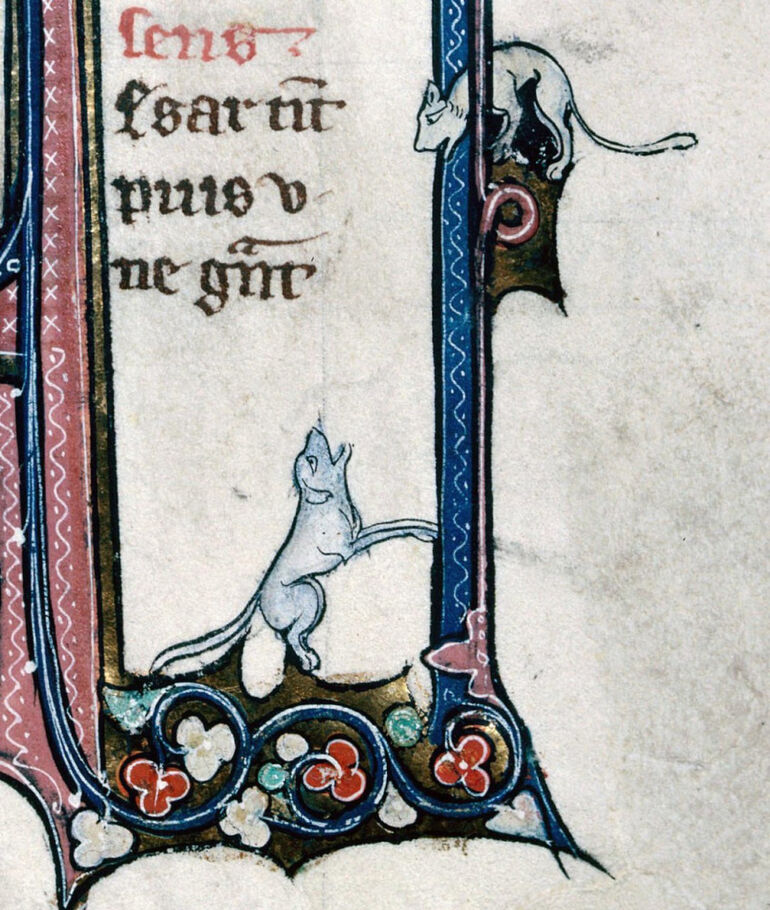 sens
Esar tīt
puis v
ne gᵃnt